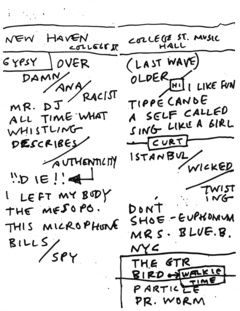 NEW HAVEN
COLLEGE ST
GYPSY OVER
DAMN
ANA
RACIST
MR. DJ
ALL TIME WHAT
WHISTLING
DESCRIBES
AUTHENTICITY
"DIE!!
I LEFT MY BODY
THE MESOPO.
THIS MICROPHONE
BILLS
SPY
COLLEGE ST. MUSIC
HALL
(LAST WAVE)
OLDER
HI I LIKE FUN
TIPPECANOE
A SELF CALLED
SING LIKE A GIRL
CURT
ISTANBUL
WICKED
TWIST
ING
DON'T
SHOE - EUPHONIUM
MRS. BLUE.B.
NYC
THE GTR
BIRD WALKIE
TIME
PARTICLE
DR. WORM